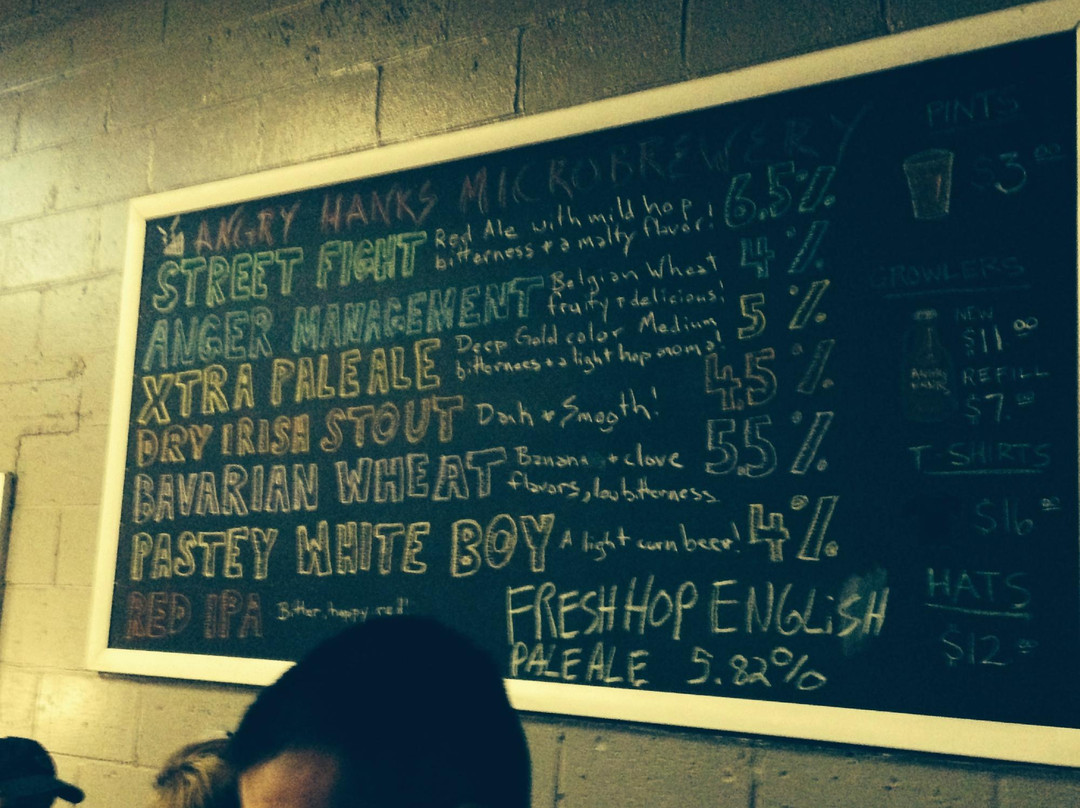 ANGRY HANKS MICROBREWERY
STREET FIGHT Red Ale with mild hop
bitterness + a malty flavor! 6.5%
ANGER MANAGEMENT Belgian Wheat
fruity + delicious! 4%
XTRA PALE ALE Deep Gold color Medium
bitterness + a light hop aroma! 5%
DRY IRISH STOUT Dark + Smooth! 4.5%
BAVARIAN WHEAT Banana + clove
flavors, low bitterness 5.5%
PASTEY WHITE BOY A light corn beer! 4%
RED IPA Bitter, hoppy red!
FRESH HOP ENGLiSH
PALE ALE 5.82%
PINTS
$3.00
GROWLERS
NEW
$11.00
ANGRY
HANK
REFILL
$7.00
T-SHIRTS
$16.00
HATS
$12.00